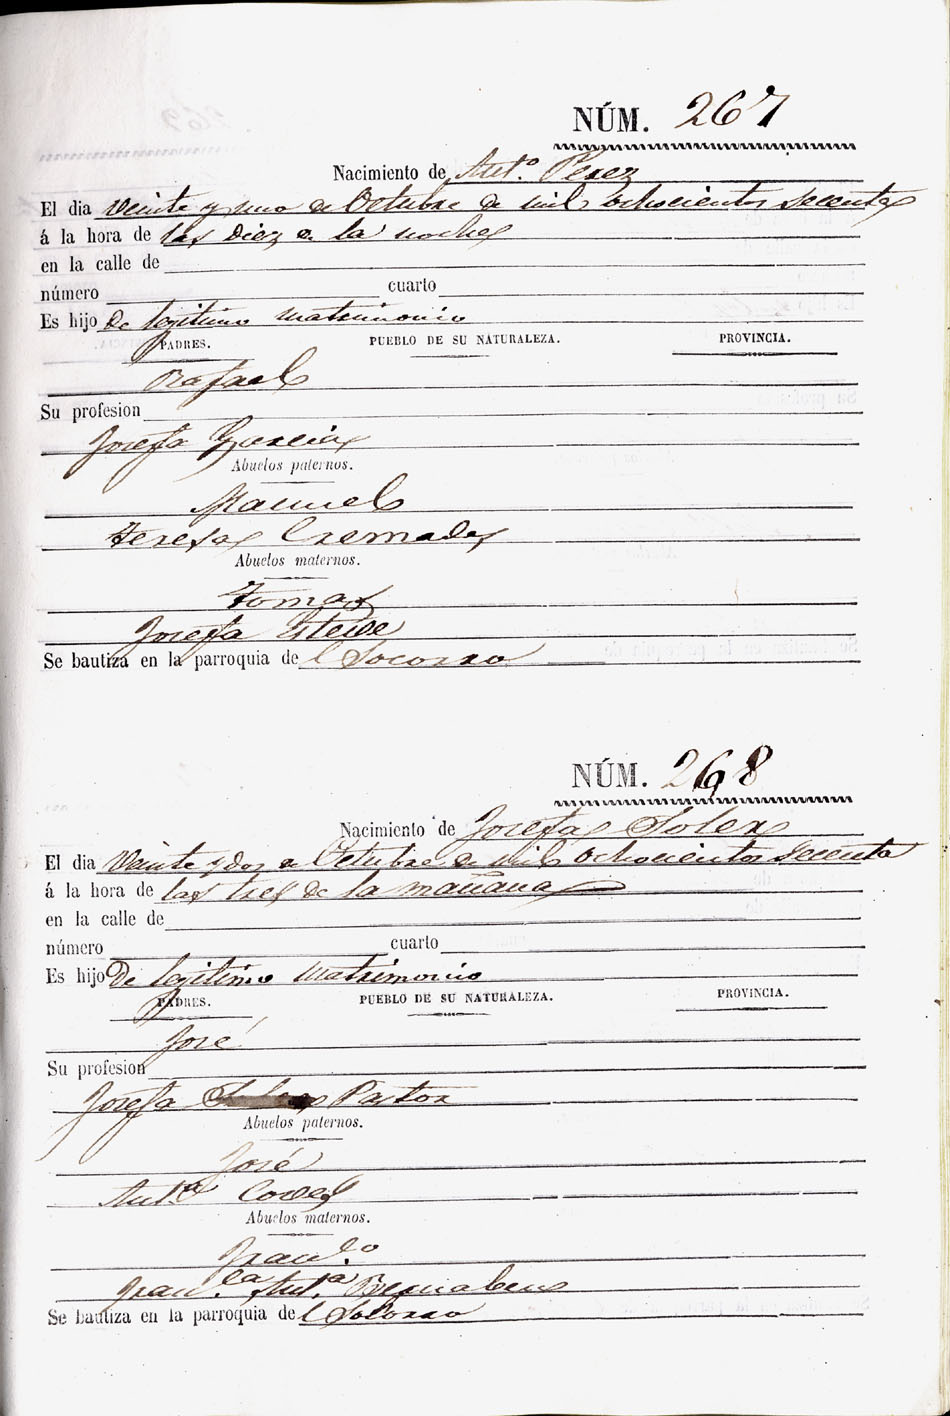 NÚM. 267
Nacimiento de Ant.º Perez
El dia veinte y uno de Octubre de mil ochocientos secenta
á la hora de las diez de la noche
en la calle de
número cuarto
Es hijo de legitimo matrimonio
PADRES. PUEBLO DE SU NATURALEZA. PROVINCIA.
Rafael
Su profesion
Josefa Garcia
Abuelos paternos.
Manuel
Teresa Cremades
Abuelos maternos.
Tomas
Josefa Esteve
Se bautiza en la parroquia de l Socorro
NÚM. 268
Nacimiento de Josefa Soler
El dia veinte y dos de Octubre de mil ochocientos secenta
á la hora de las tres de la mañana
en la calle de
número cuarto
Es hijo de legitimo matrimonio
PADRES. PUEBLO DE SU NATURALEZA. PROVINCIA.
José
Su profesion
Josefa Pastor
Abuelos paternos.
José
Ant.ª
Abuelos maternos.
Fran.co
Fran.ca Ant.ª Bernabeu
Se bautiza en la parroquia de l Socorro